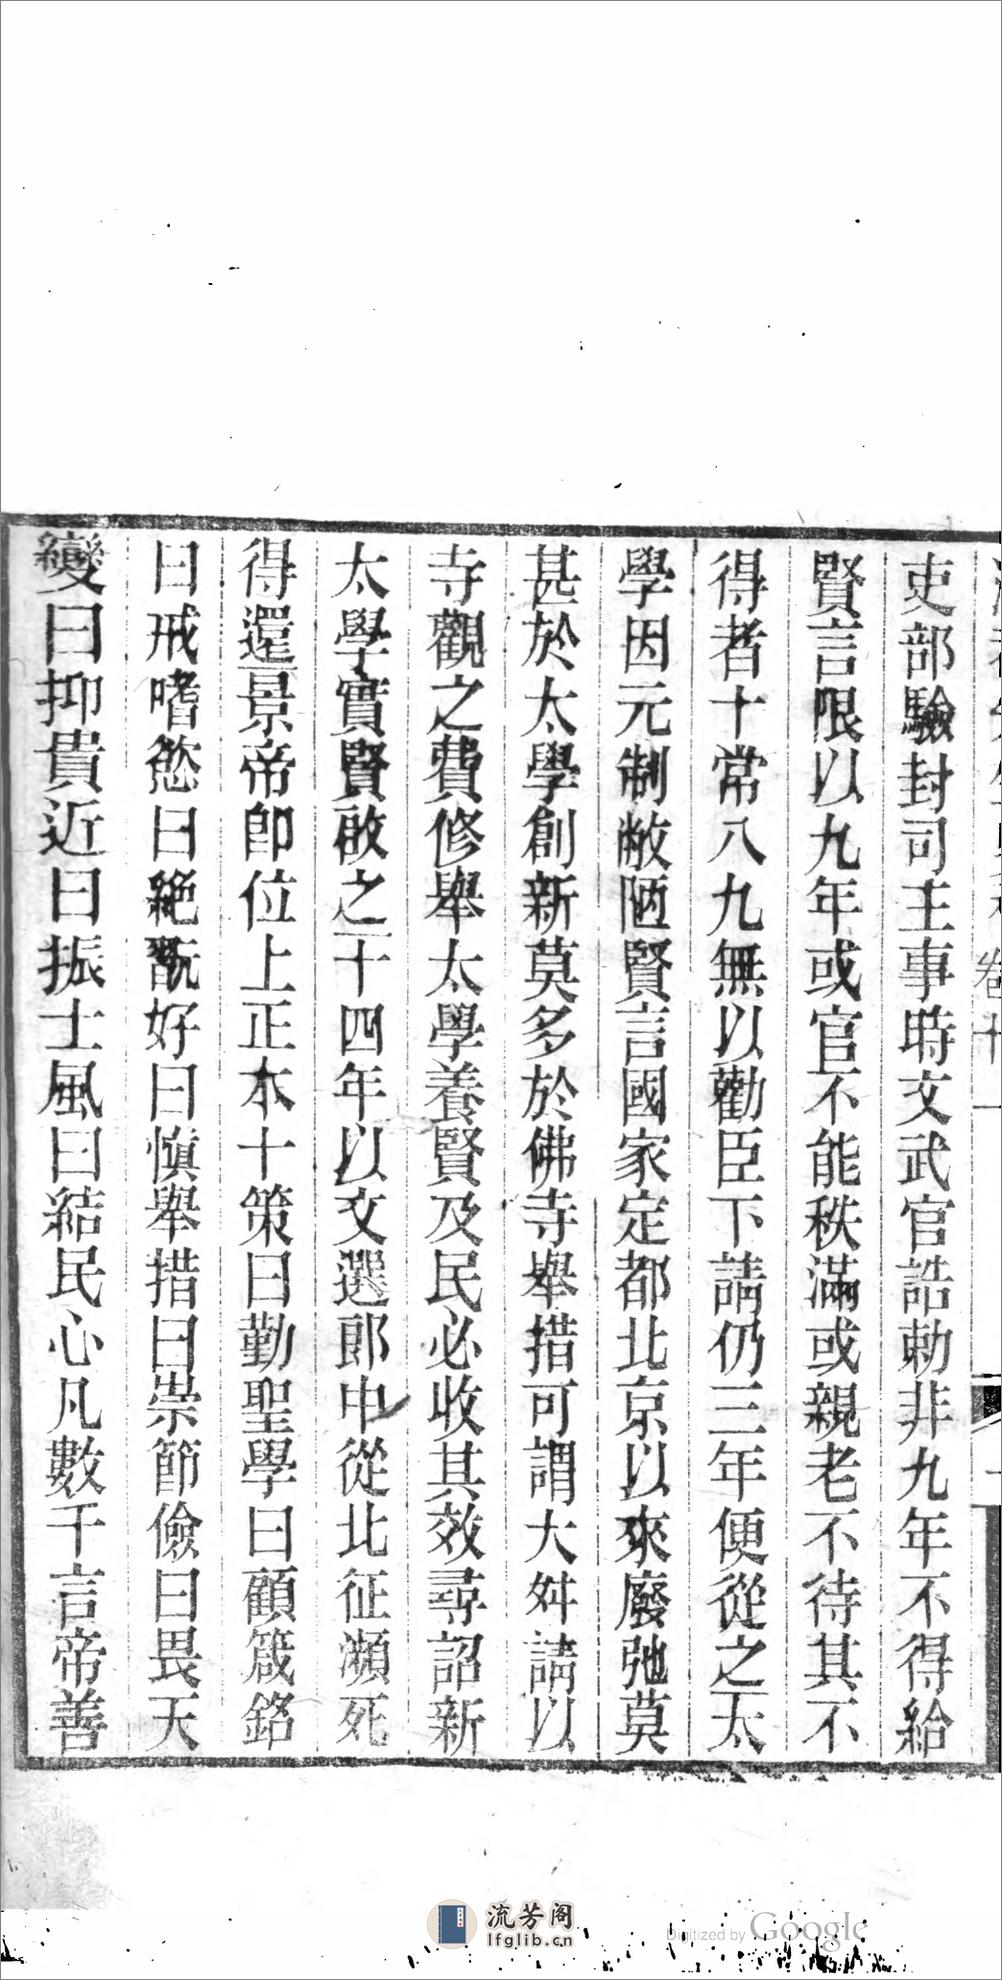 卷十一
吏部驗封司主事時文武官誥勅非九年不得給
賢言限以九年或官不能秩滿或親老不待其不
得者十常八九無以勸臣下請仍三年便從之太
學因元制敝陋賢言國家定都北京以來廢弛莫
甚於太學創新莫多於佛寺舉措可謂大舛請以
寺觀之費修舉太學養賢及民必收其效尋詔新
太學實賢啟之十四年以文選郎中從北征瀕死
得還景帝卽位上正本十策曰勤聖學曰顧箴銘
曰戒嗜慾曰絕翫好曰愼舉措曰崇節儉曰畏天
變曰抑貴近曰振士風曰結民心凡數千言帝善
流芳阁
lfglib.cn
Digitized by Google